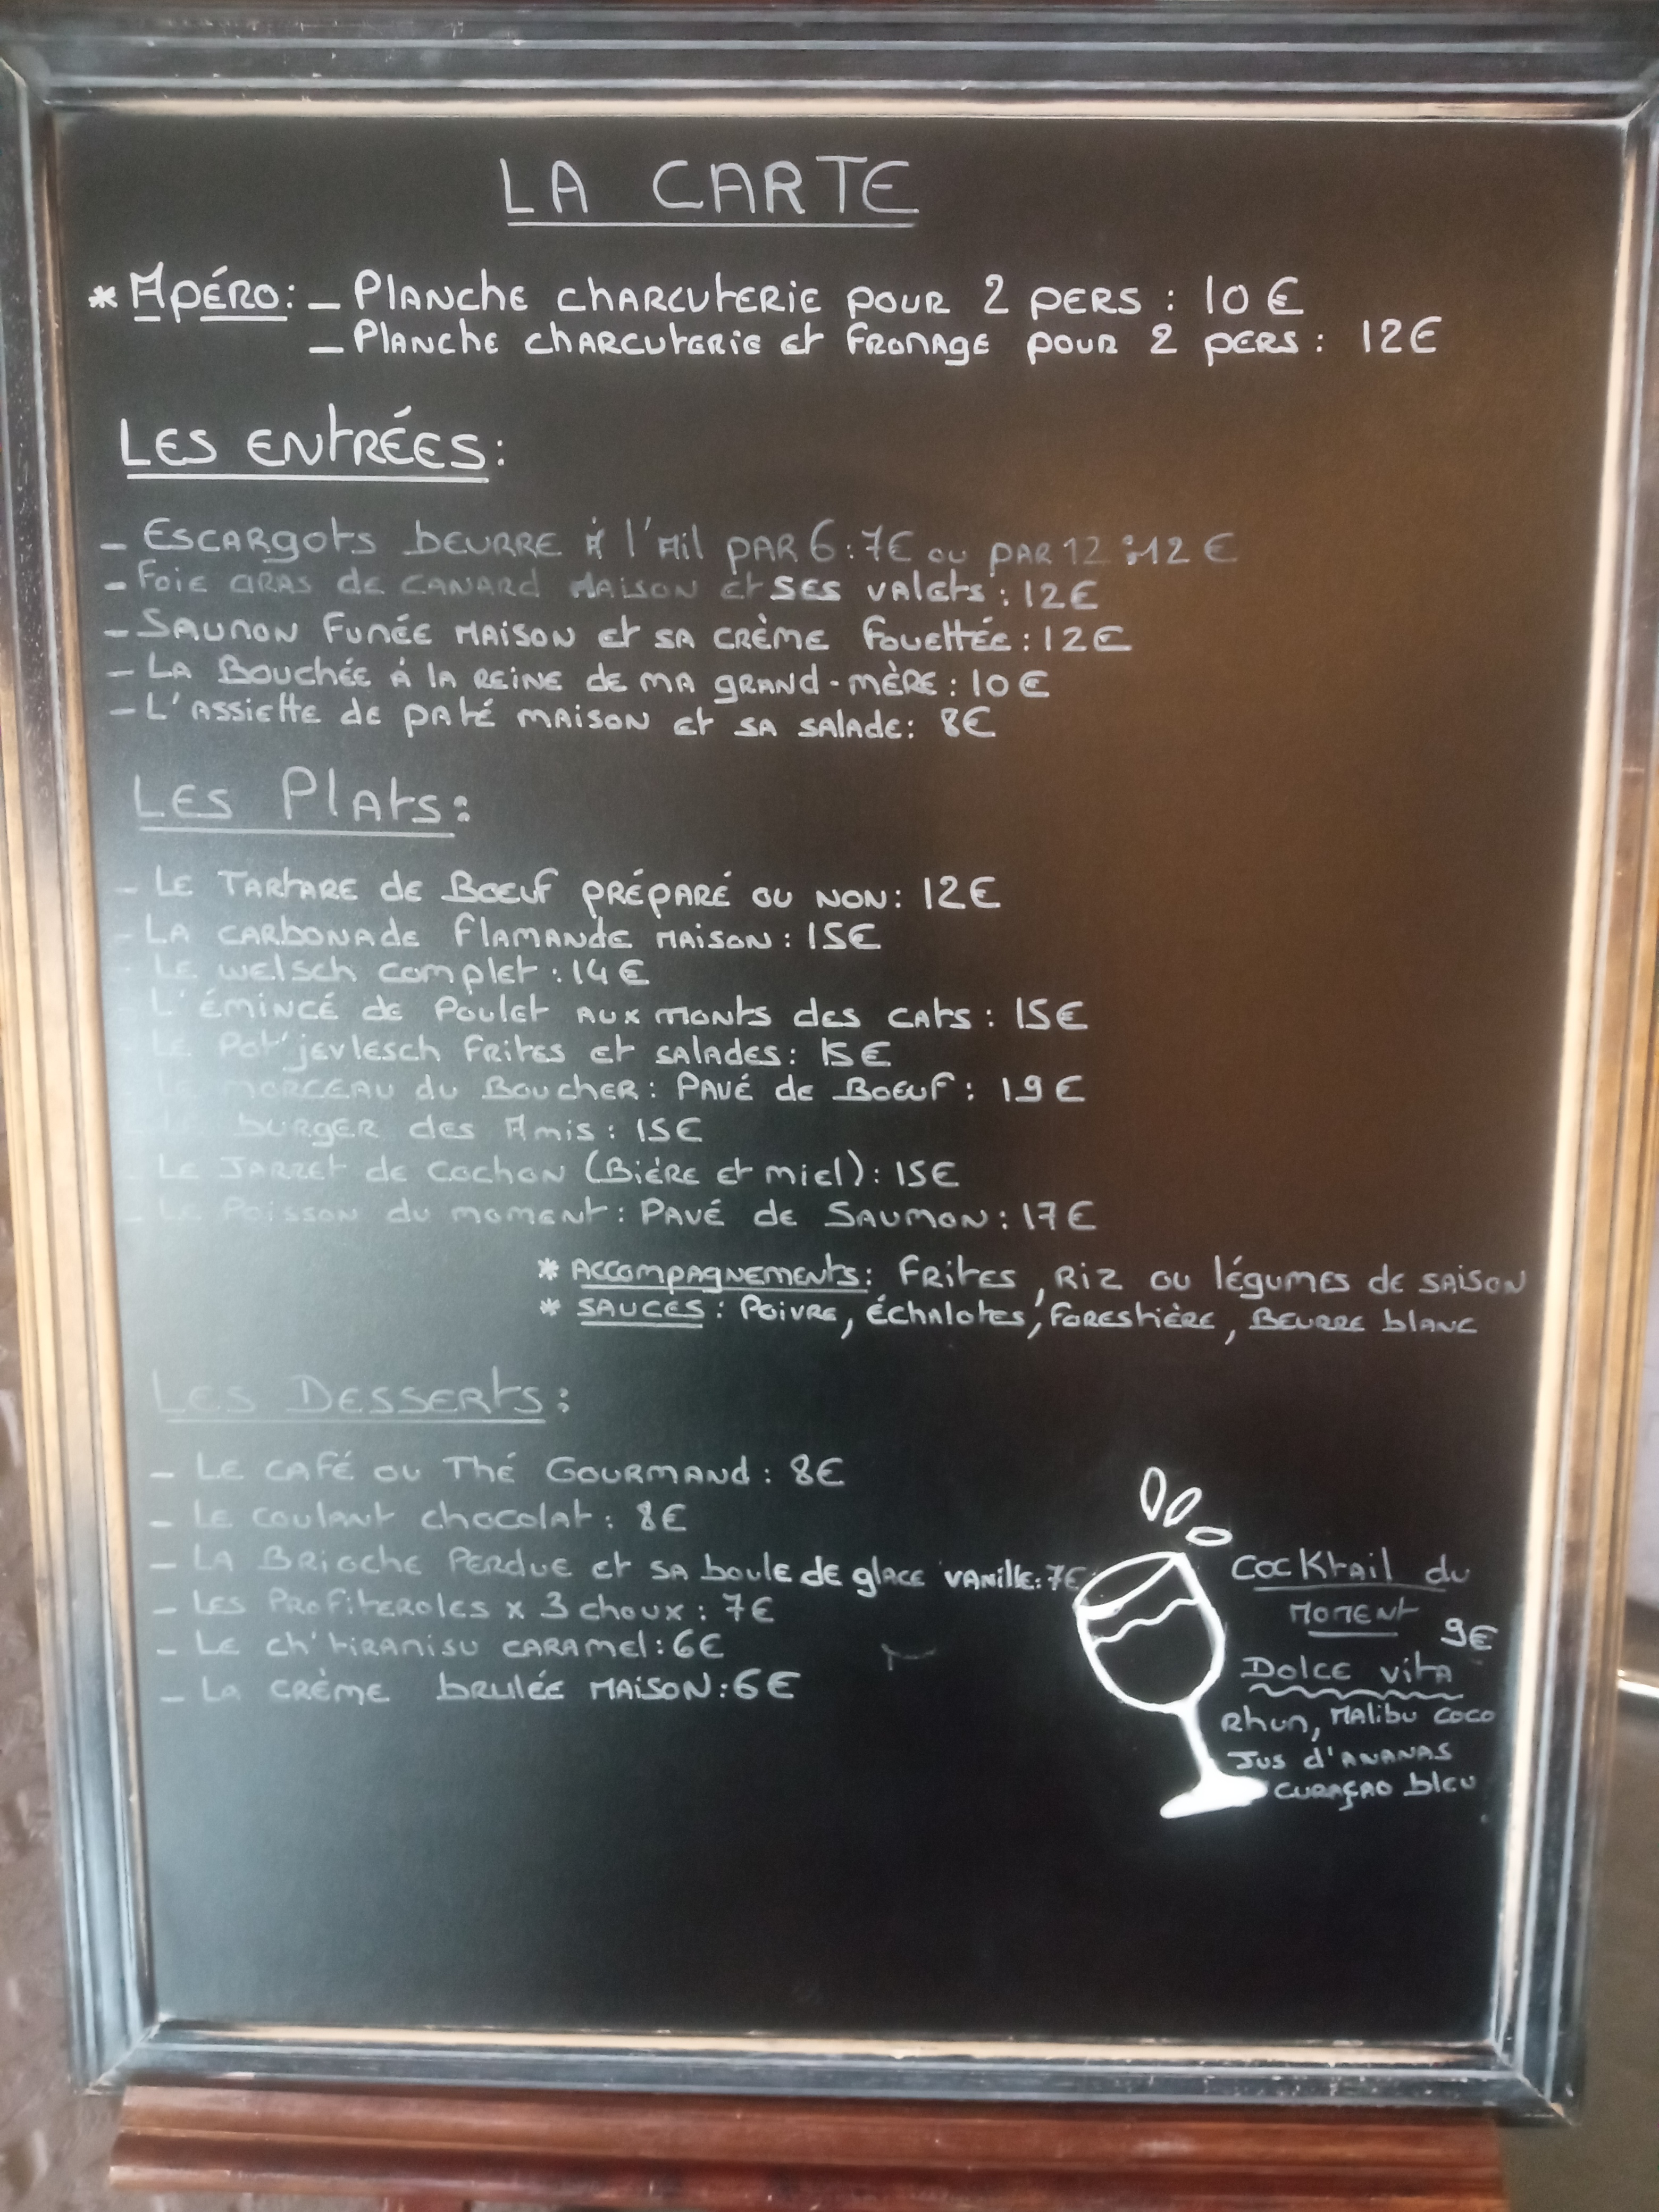 LA CARTE
* Apéro: - Planche charcuterie pour 2 pers : 10 €
- Planche charcuterie et fromage pour 2 pers : 12€
Les entrées:
- Escargots beurre à l'ail par 6 : 7€ ou par 12 : 12 €
- Foie gras de canard maison et ses valets : 12€
- Saumon fumée maison et sa crème fouettée : 12€
- La Bouchée à la reine de ma grand-mère : 10€
- L'assiette de paté maison et sa salade : 8€
Les Plats :
- Le Tartare de Bœuf préparé ou non : 12€
- La carbonade flamande maison : 15€
- Le welsch complet : 14€
- L'émincé de Poulet aux monts des cats : 15€
- Le Pot'jevlesch frites et salades : 15€
- Le morceau du Boucher : Pavé de Boeuf : 19€
burger des Amis : 15€
- Le Jarret de cochon (Bière et miel) : 15€
- Le Poisson du moment : Pavé de Saumon : 17€
* Accompagnements : Frites, Riz ou légumes de saison
* Sauces : Poivre, échalotes, Forestière, Beurre blanc
Les Desserts :
- Le café ou Thé Gourmand : 8€
- Le coulant chocolat : 8€
- La Brioche Perdue et sa boule de glace vanille : 7€
- Les Profiteroles x 3 choux : 7€
- Le ch'tiramisu caramel : 6€
- La crème brulée maison : 6€
Cocktail du
moment
9€
Dolce vita
Rhum, Malibu coco
Jus d'ananas
curaçao bleu